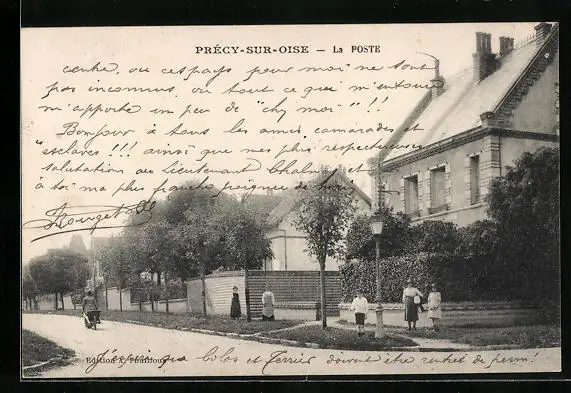 PRÉCY-SUR-OISE — La POSTE
centre, ou ces pays pour moi ne sont
pas inconnus, ou tout ce qui m'entoure
m'apporte un peu de "chy moi" !!
Bonjour à tous les amis, camarades et
"esclaves" !!! ainsi que mes plus respectueuses
salutation au Lieutenant et
à toi ma plus franche poignée de main.
Rouget
Edition A.
que Colas et Terrier doivent être rentré de perm!